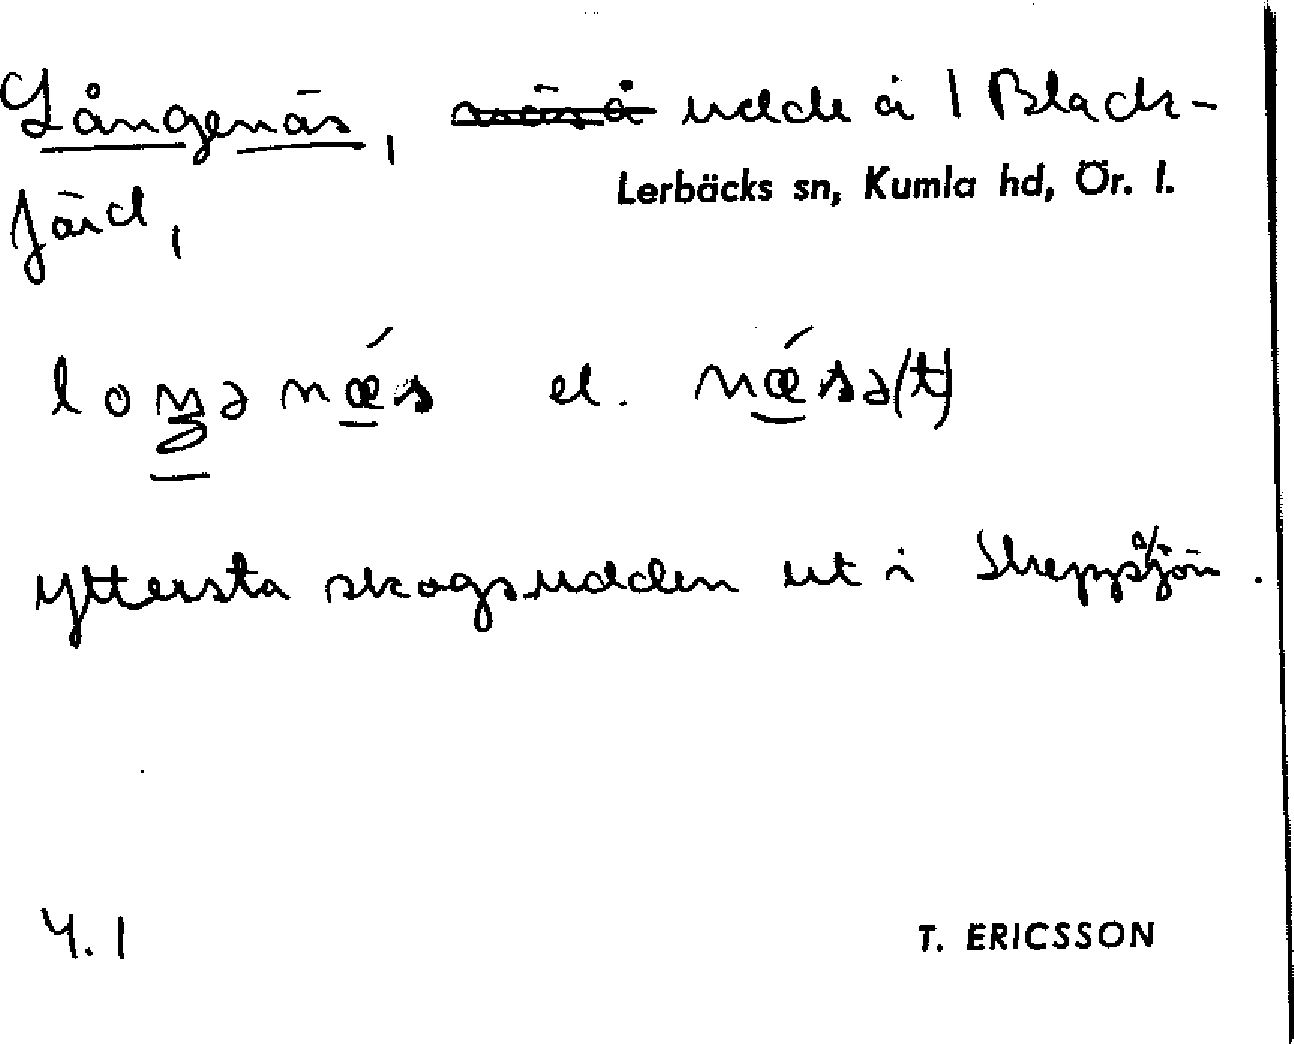 Långenäs, udde å 1 Black-
Lerbäcks sn, Kumla hd, Ör. l.
färd,
loŋənǽs el. nǽsə(t)
yttersta skogsudden ut i Skeppsjön.
4.1
T. ERICSSON